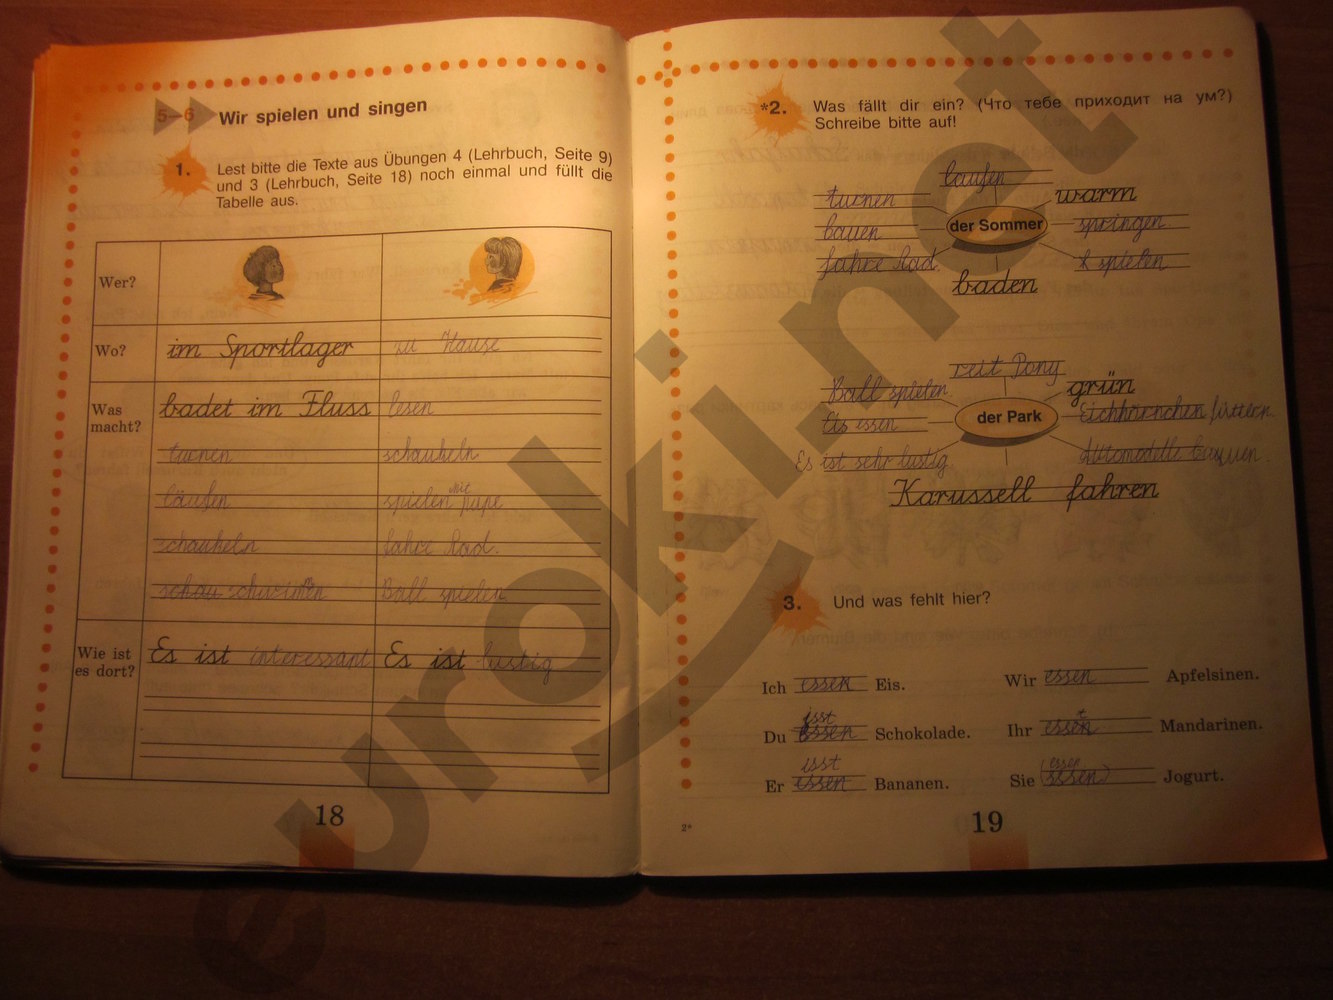 5–6 Wir spielen und singen
1. Lest bitte die Texte aus Übungen 4 (Lehrbuch, Seite 9)
und 3 (Lehrbuch, Seite 18) noch einmal und füllt die
Tabelle aus.
Wer?
Wo? im Sportlager zu Hause
Was macht? badet im Fluss lesen
turnen schaukeln
laufen spielen mit
schaukeln fahre Rad.
schau schwimmen Ball spielen
Wie ist es dort? Es ist interessant Es ist lustig
18
*2. Was fällt dir ein? (Что тебе приходит на ум?)
Schreibe bitte auf!
laufen
turnen warm
bauen der Sommer springen
fahre Rad. spielen
baden
reit Pony
Ball spielen grün
Eis essen der Park Eichhörnchen füttern
Es ist sehr lustig Automodelle
Karussell fahren
3. Und was fehlt hier?
Ich essen Eis. Wir essen Apfelsinen.
isst t
Du essen Schokolade. Ihr essen Mandarinen.
isst essen
Er essen Bananen. Sie (essen) Jogurt.
2*
19
eurokinet